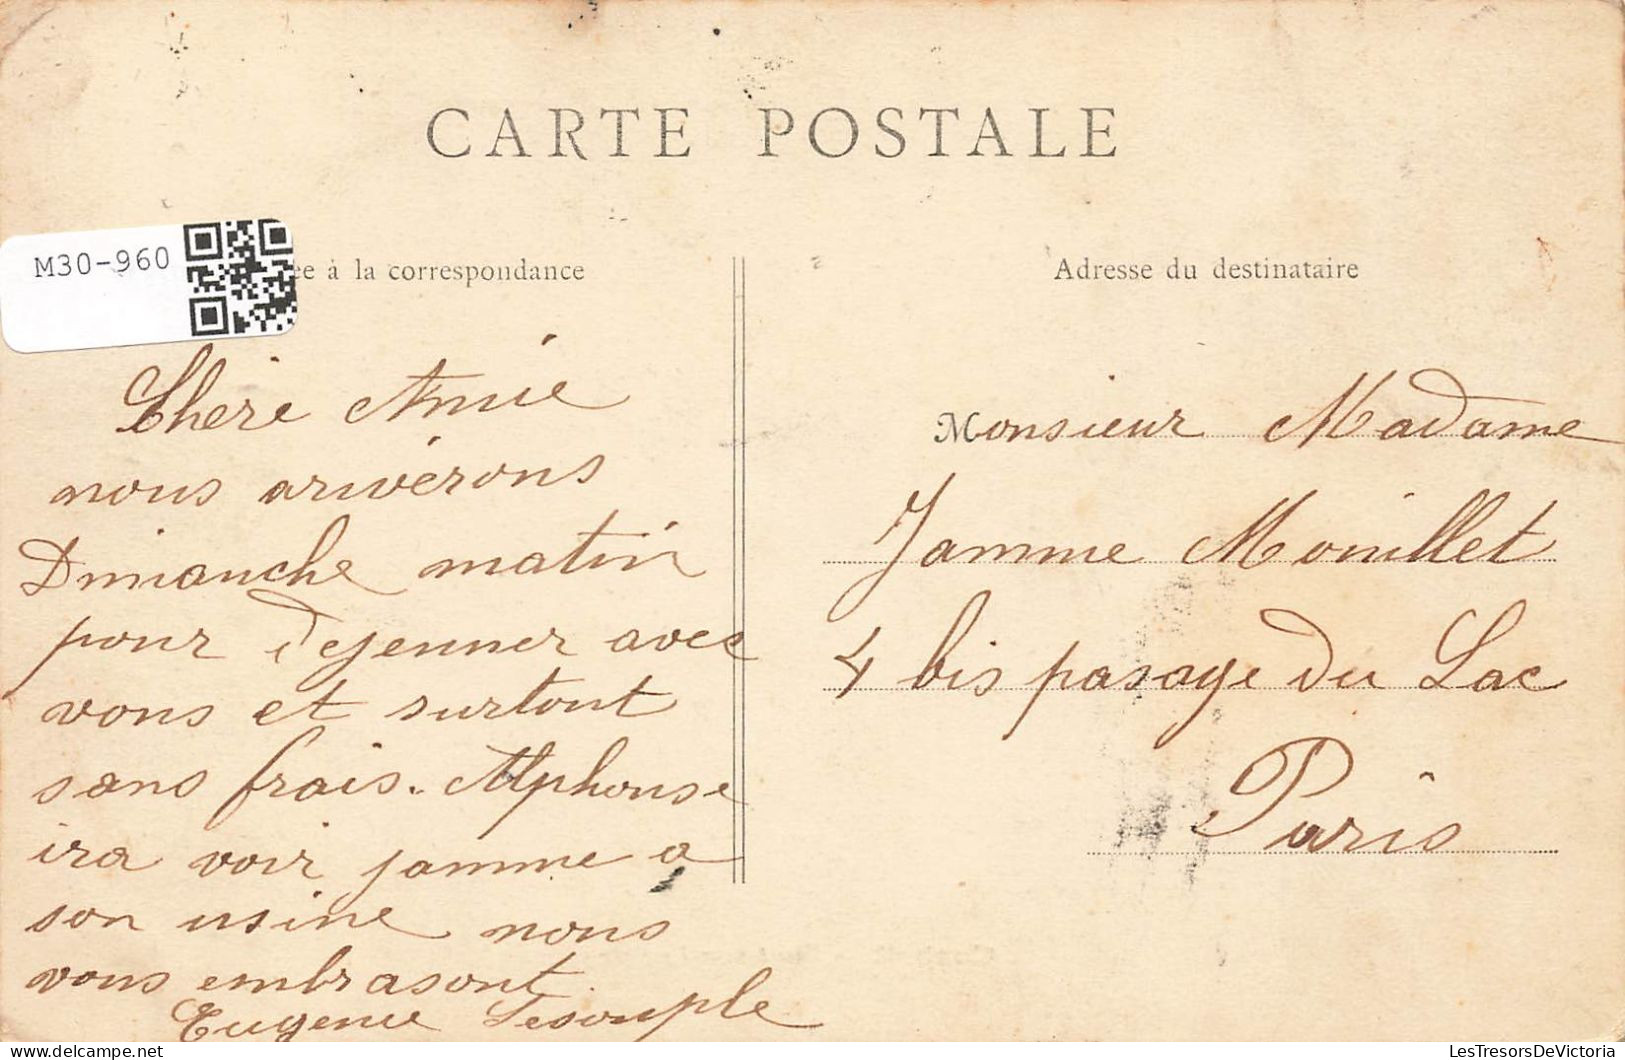 CARTE POSTALE
M30-960
ée à la correspondance
Adresse du destinataire
Chère Amie
nous ariverons
Dimanche matin
pour dejenner avec
vous et surtout
sans frais. Alphonse
ira voir jamme a
son usine nous
vous embrasont
Eugenie Lesouple
Monsieur Madame
Jamme Mouillet
4 bis pasage du Lac
Paris
LesTresorsDeVictoria